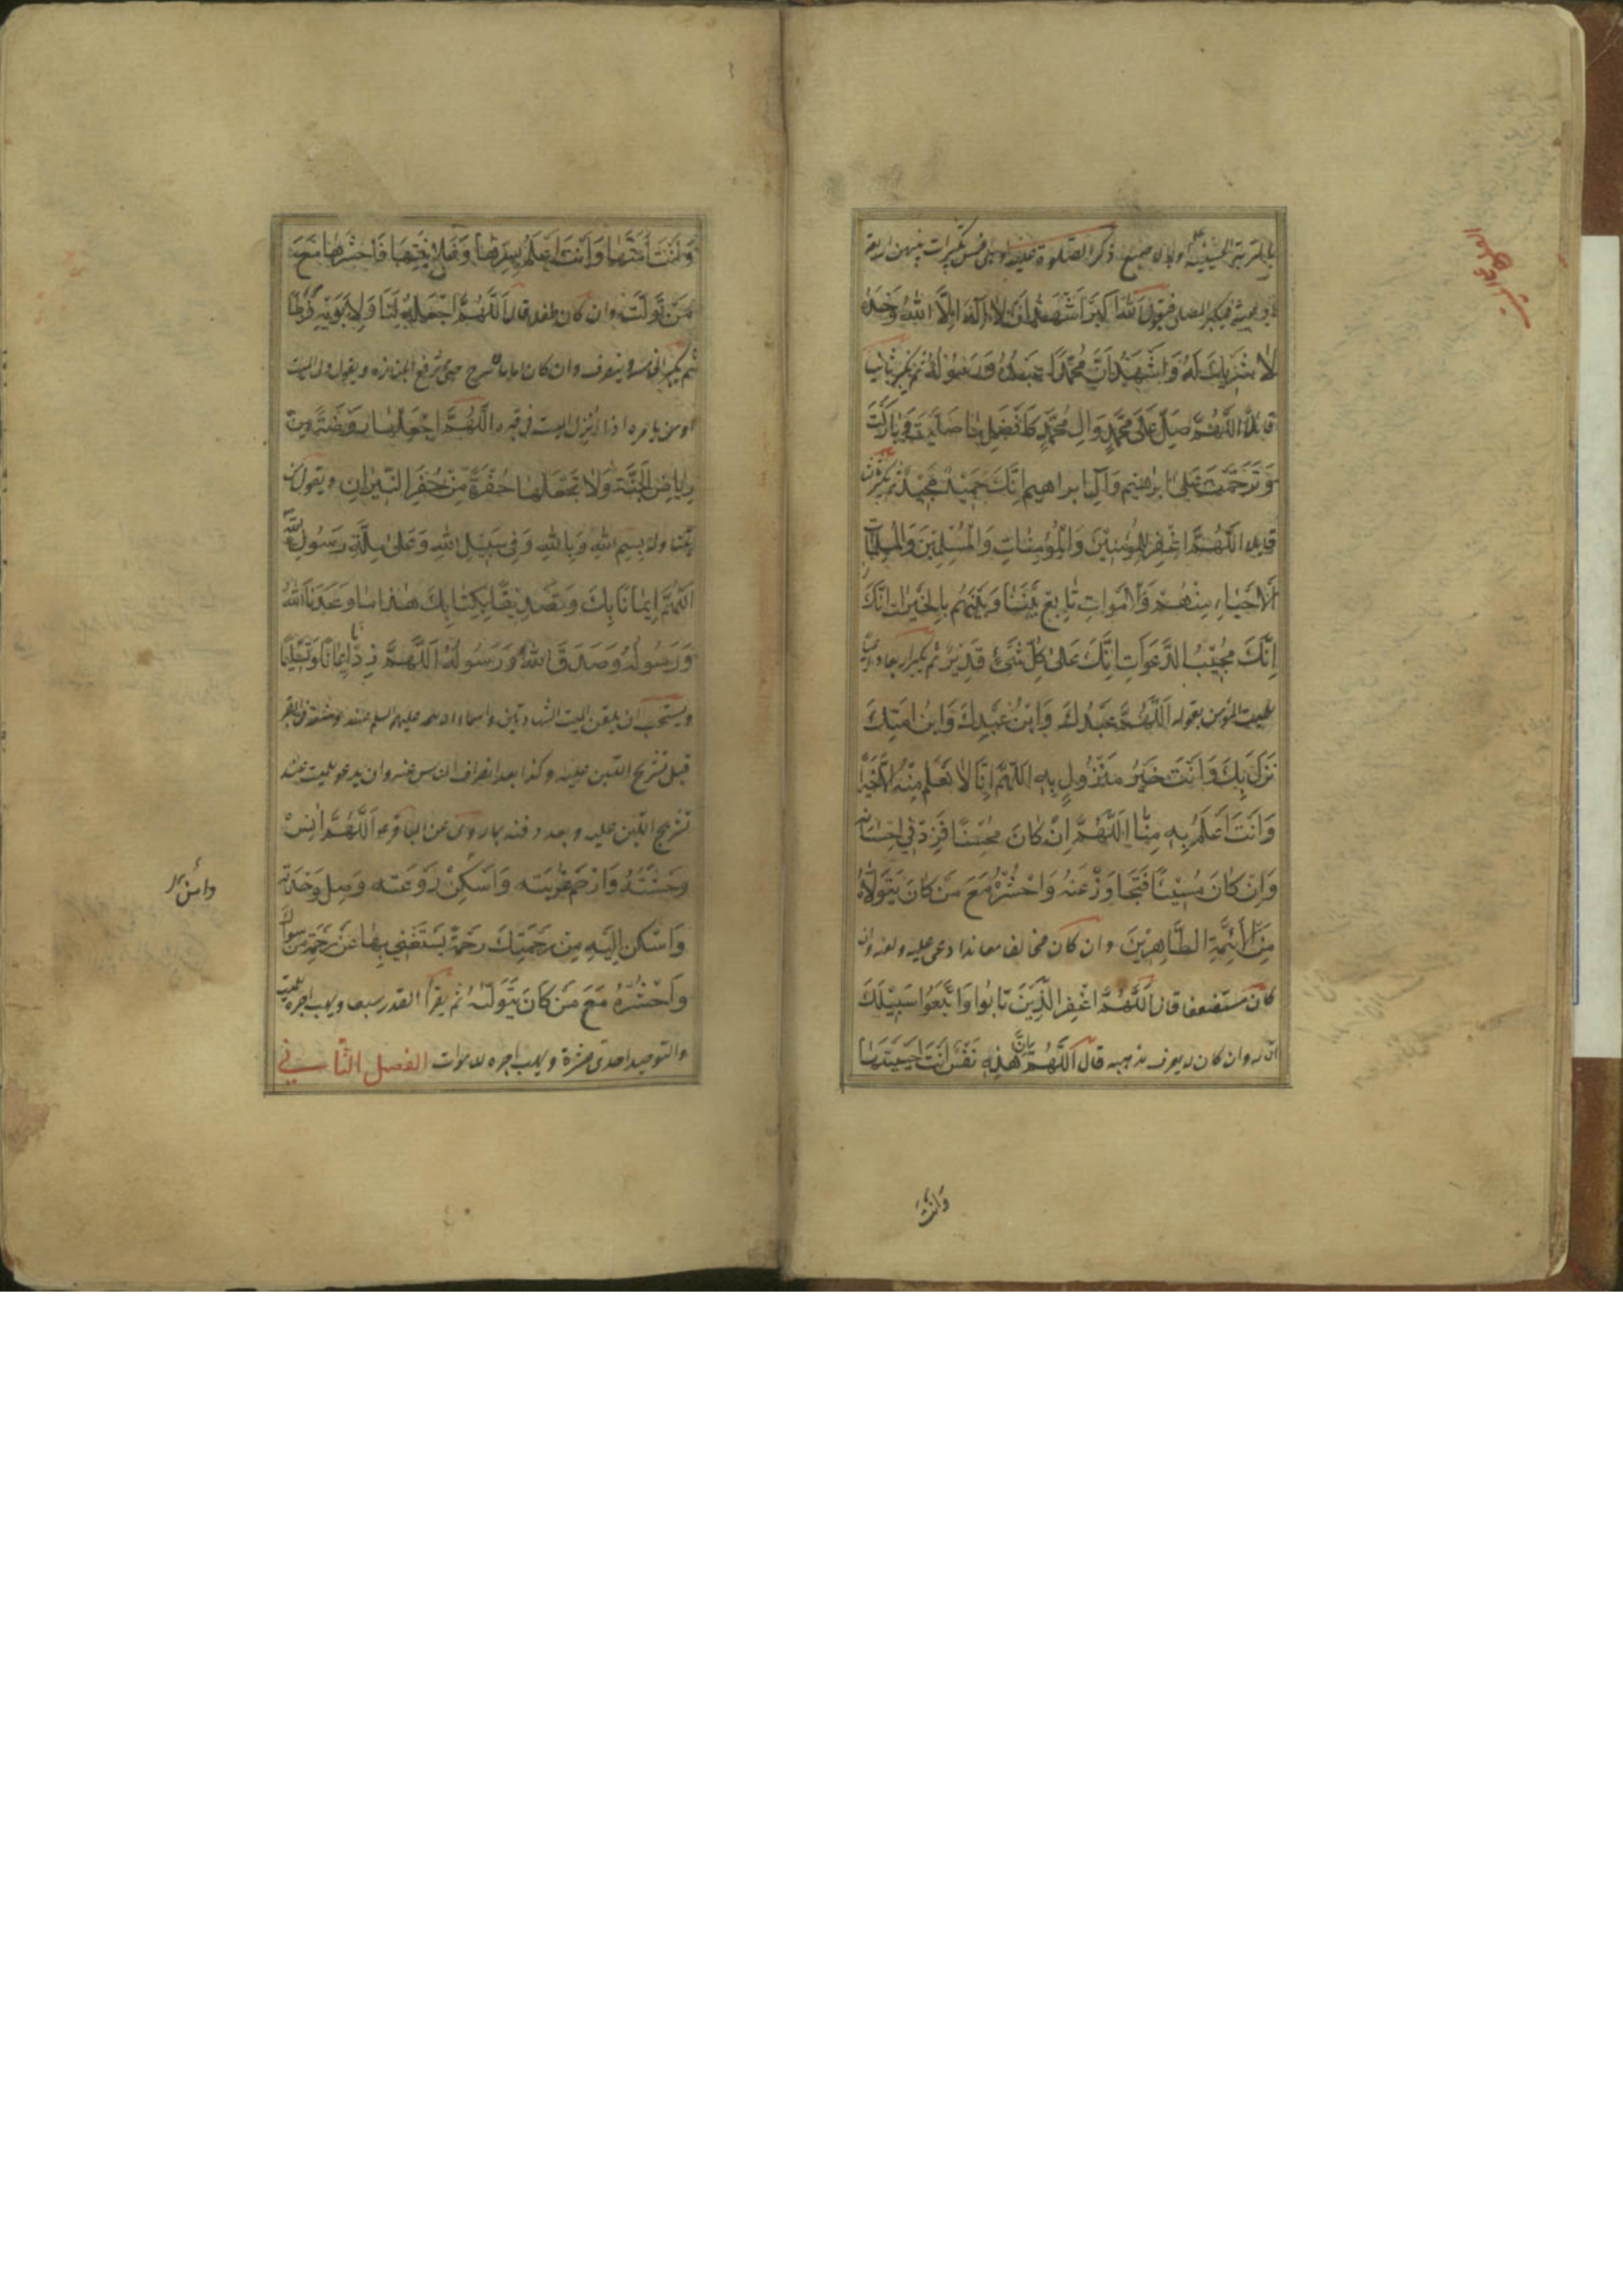 ذكر الصلوة عليه وهى خمس تكبيرات بينهن اربعة
فيقول الله اكبر اَشْهَدُ اَنْ لَا اِلٰهَ اِلَّا اللهُ وَحْدَهُ
لَا شَرِيكَ لَهُ وَاَشْهَدُ اَنَّ مُحَمَّدًا عَبْدُهُ وَرَسُولُهُ ثم يكبر ثانيا
قائلا اَللّٰهُمَّ صَلِّ عَلَى مُحَمَّدٍ وَآلِ مُحَمَّدٍ كَاَفْضَلِ مَا صَلَّيْتَ وَبَارَكْتَ
وَتَرَحَّمْتَ عَلَى اِبْرٰهِيمَ وَآلِ اِبْرَاهِيمَ اِنَّكَ حَمِيدٌ مَجِيدٌ ثم يكبر
قايلا اَللّٰهُمَّ اغْفِرْ لِلْمُؤْمِنِينَ وَالْمُؤْمِنَاتِ وَالْمُسْلِمِينَ وَالْمُسْلِمَاتِ
اَلْاَحْيَاءِ مِنْهُمْ وَالْاَمْوَاتِ تَابِعْ بَيْنَنَا وَبَيْنَهُمْ بِالْخَيْرَاتِ اِنَّكَ
اِنَّكَ مُجِيبُ الدَّعَوَاتِ اِنَّكَ عَلَى كُلِّ شَيْءٍ قَدِيرٌ ثم يكبر
للميت المؤمن بقوله اَللّٰهُمَّ عَبْدُكَ وَابْنُ عَبْدِكَ وَابْنُ اَمَتِكَ
نَزَلَ بِكَ وَاَنْتَ خَيْرُ مَنْزُولٍ بِهِ اَللّٰهُمَّ اِنَّا لَا نَعْلَمُ مِنْهُ اِلَّا خَيْرًا
وَاَنْتَ اَعْلَمُ بِهِ مِنَّا اَللّٰهُمَّ اِنْ كَانَ مُحْسِنًا فَزِدْ فِي اِحْسَانِهِ
وَاِنْ كَانَ مُسِيئًا فَتَجَاوَزْ عَنْهُ وَاحْشُرْهُ مَعَ مَنْ كَانَ يَتَوَلَّاهُ
مِنَ الْاَئِمَّةِ الطَّاهِرِينَ وان كان مخالفا معاندا دعى عليه ولعنه وان
كان مستضعفا قال اَللّٰهُمَّ اغْفِرْ لِلَّذِينَ تَابُوا وَاتَّبَعُوا سَبِيلَكَ
وان كان لا يعرف مذهبه قال اَللّٰهُمَّ اِنَّ هٰذِهِ نَفْسٌ اَنْتَ اَحْيَيْتَهَا
وَاَنْتَ
وَاَنْتَ اَمَتَّهَا وَاَنْتَ اَعْلَمُ بِسِرِّهَا وَعَلَانِيَتِهَا فَاحْشُرْهَا مَعَ
مَنْ تَوَلَّتْ وان كان طفلا قال اَللّٰهُمَّ اجْعَلْهُ لَنَا وَلِاَبَوَيْهِ فَرَطًا
ثم يكبر الخامسة وينصرف وان كان اماما حتى ترفع الجنازة ويقول ولى الميت
او من يامره اذا نزل الميت فى قبره اَللّٰهُمَّ اجْعَلْهَا رَوْضَةً مِنْ
رِيَاضِ الْجَنَّةِ وَلَا تَجْعَلْهَا حُفْرَةً مِنْ حُفَرِ النِّيرَانِ ويقول
بِسْمِ اللهِ وَبِاللهِ وَفِي سَبِيلِ اللهِ وَعَلَى مِلَّةِ رَسُولِ اللهِ
اَللّٰهُمَّ اِيمَانًا بِكَ وَتَصْدِيقًا بِكِتَابِكَ هٰذَا مَا وَعَدَنَا اللهُ
وَرَسُولُهُ وَصَدَقَ اللهُ وَرَسُولُهُ اَللّٰهُمَّ زِدْنَا اِيمَانًا وَتَسْلِيمًا
ويستحب ان يلقن الميت الشهادتين واسماء الائمة عليهم السلم عند وضعه فى القبر
قبل تشريج اللبن عليه وكذا بعد انصراف الناس عنه وان يدعو للميت عند
تشريج اللبن عليه وبعد دفنه بما روى عن الباقر ع اَللّٰهُمَّ اٰنِسْ
وَحْشَتَهُ وَارْحَمْ غُرْبَتَهُ وَاَسْكِنْ رَوْعَتَهُ وَصِلْ وَحْدَتَهُ
وَاَسْكِنْ اِلَيْهِ مِنْ رَحْمَتِكَ رَحْمَةً يَسْتَغْنِي بِهَا عَنْ رَحْمَةِ مَنْ سِوَاكَ
وَاحْشُرْهُ مَعَ مَنْ كَانَ يَتَوَلَّاهُ ثم يقرأ القدر سبعا ويهب اجره للميت
والتوحيد احدى عشرة ويهب اجره للاموات الفصل الثانى